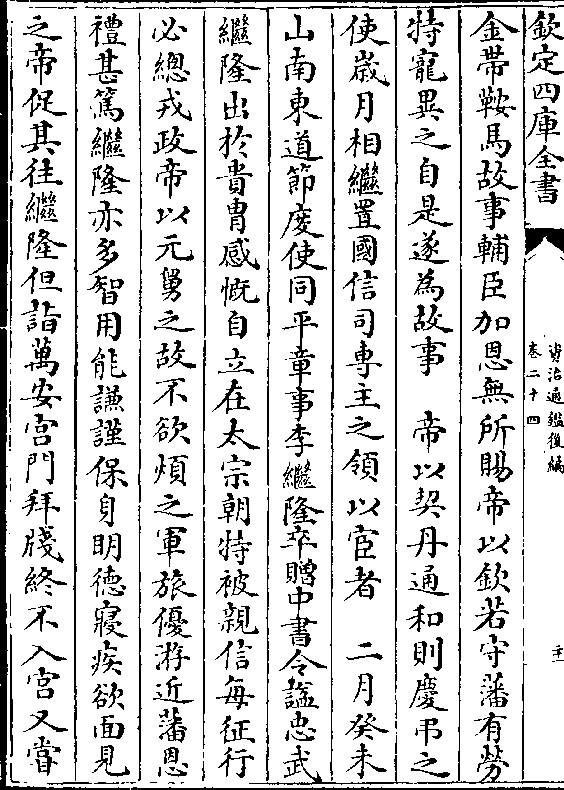 欽定四庫全書
資治通鑑後編
卷二十四
金帶鞍馬故事輔臣加恩無所賜帝以欽若守藩有勞
特寵異之自是遂為故事　帝以契丹通和則慶弔之
使歲月相繼置國信司專主之領以宦者　二月癸未
山南東道節度使同平章事李繼隆卒贈中書令諡忠武
繼隆出於貴冑感慨自立在太宗朝特被親信每征行
必總戎政帝以元舅之故不欲煩之軍旅優游近藩恩
禮甚篤繼隆亦多智用能謙謹保身明德寢疾欲面見
之帝促其往繼隆但詣萬安宮門拜牋終不入宮又嘗